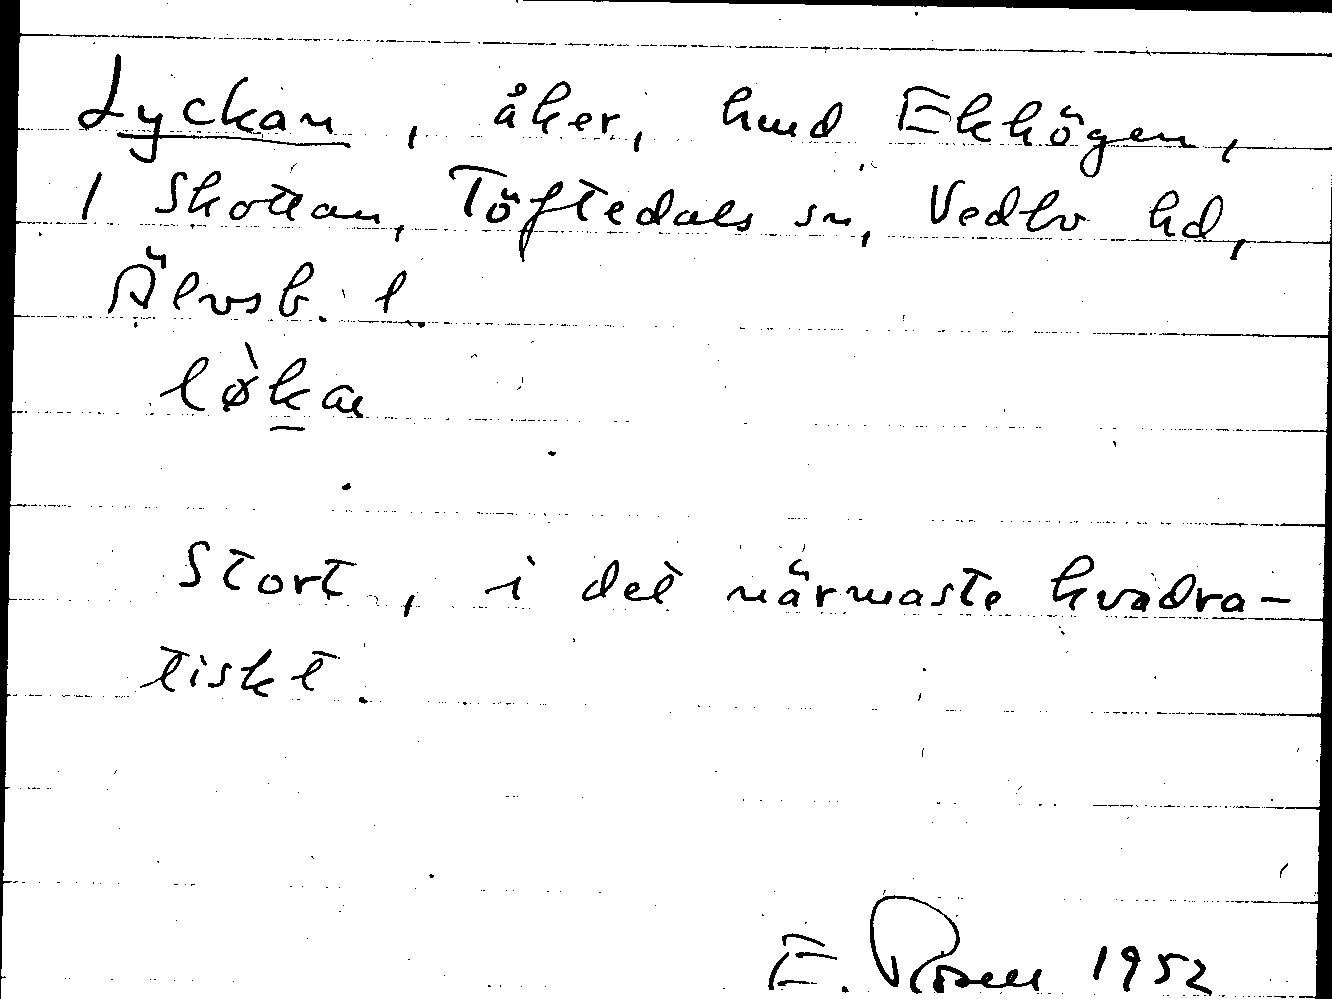 Lyckan, åker, hmd Ekhögen,
1 Skottan, Töftedals sn, Vedbo hd,
Älvsb. l.
lø̀kan
Stort, i det närmaste kvadra-
tiskt.
E. Rosell 1952